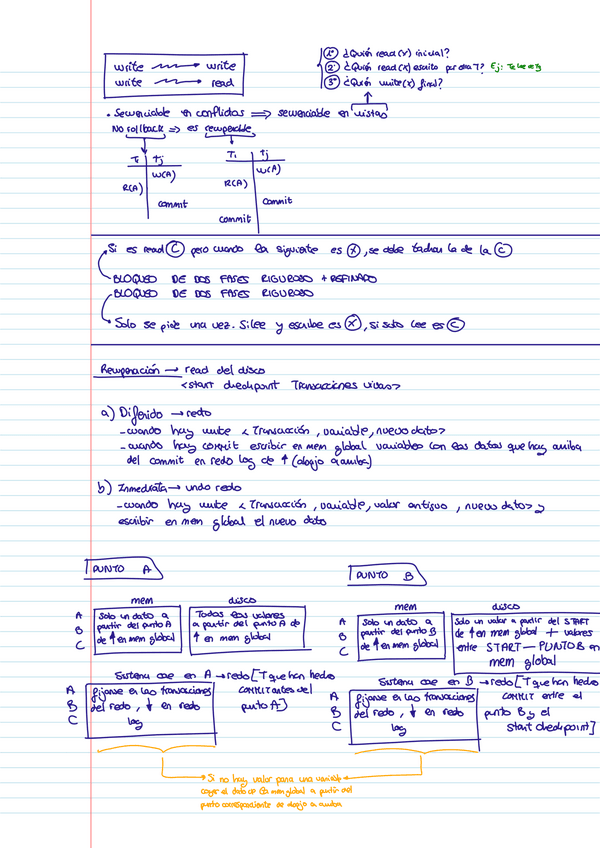 write write
write read
1º ¿Quién read(x) inicial?
2º ¿Quién read(x) escrito por otra T? Ej: Ti lee e Tj
3º ¿Quién write(x) final?
• Secuenciable en conflictos ⟹ secuenciable en vistas
No rollback ⟹ es recuperable
Ti Tj
W(A)
R(A)
commit
Ti Tj
W(A)
R(A)
commit
commit
Si es read C pero cuando la siguiente es X, se debe tachar la de la C
BLOQUEO DE DOS FASES RIGUROSO + REFINADO
BLOQUEO DE DOS FASES RIGUROSO
Solo se pide una vez. Si lee y escribe es X, si solo lee es C
Recuperación → read del disco
<start checkpoint Transacciones vivas>
a) Diferido → redo
- cuando hay write <Transacción, variable, nuevo dato>
- cuando hay commit escribir en mem global variables con los datos que hay arriba
del commit en redo log de ↑ (abajo a arriba)
b) Inmediata → undo redo
- cuando hay write <Transacción, variable, valor antiguo, nuevo dato> y
escribir en mem global el nuevo dato
PUNTO A
mem disco
A
B
C
Solo un dato a
partir del punto A
de ↑ en mem global
Todos los valores
a partir del punto A de
↑ en mem global
Sistema cae en A → redo [T que han hecho
COMMIT antes del
punto A]
A
B
C
fijarse en las transacciones
del redo, ↓ en redo
log
PUNTO B
mem disco
A
B
C
Solo un dato a
partir del punto B
de ↑ en mem global
Solo un valor a partir del START
de ↑ en mem global + valores
entre START — PUNTO B en
mem global
Sistema cae en B → redo [T que han hecho
COMMIT entre el
punto B y el
start checkpoint]
A
B
C
fijarse en las transacciones
del redo, ↓ en redo
log
Si no hay valor para una variable
coger el dato de la mem global a partir del
punto correspondiente de abajo a arriba